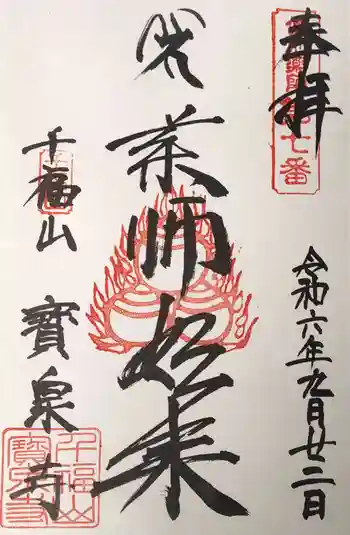 奉拝
令和六年九月廿二日
薬師如来
千福山
寳泉寺
七番
千福山
寳泉寺